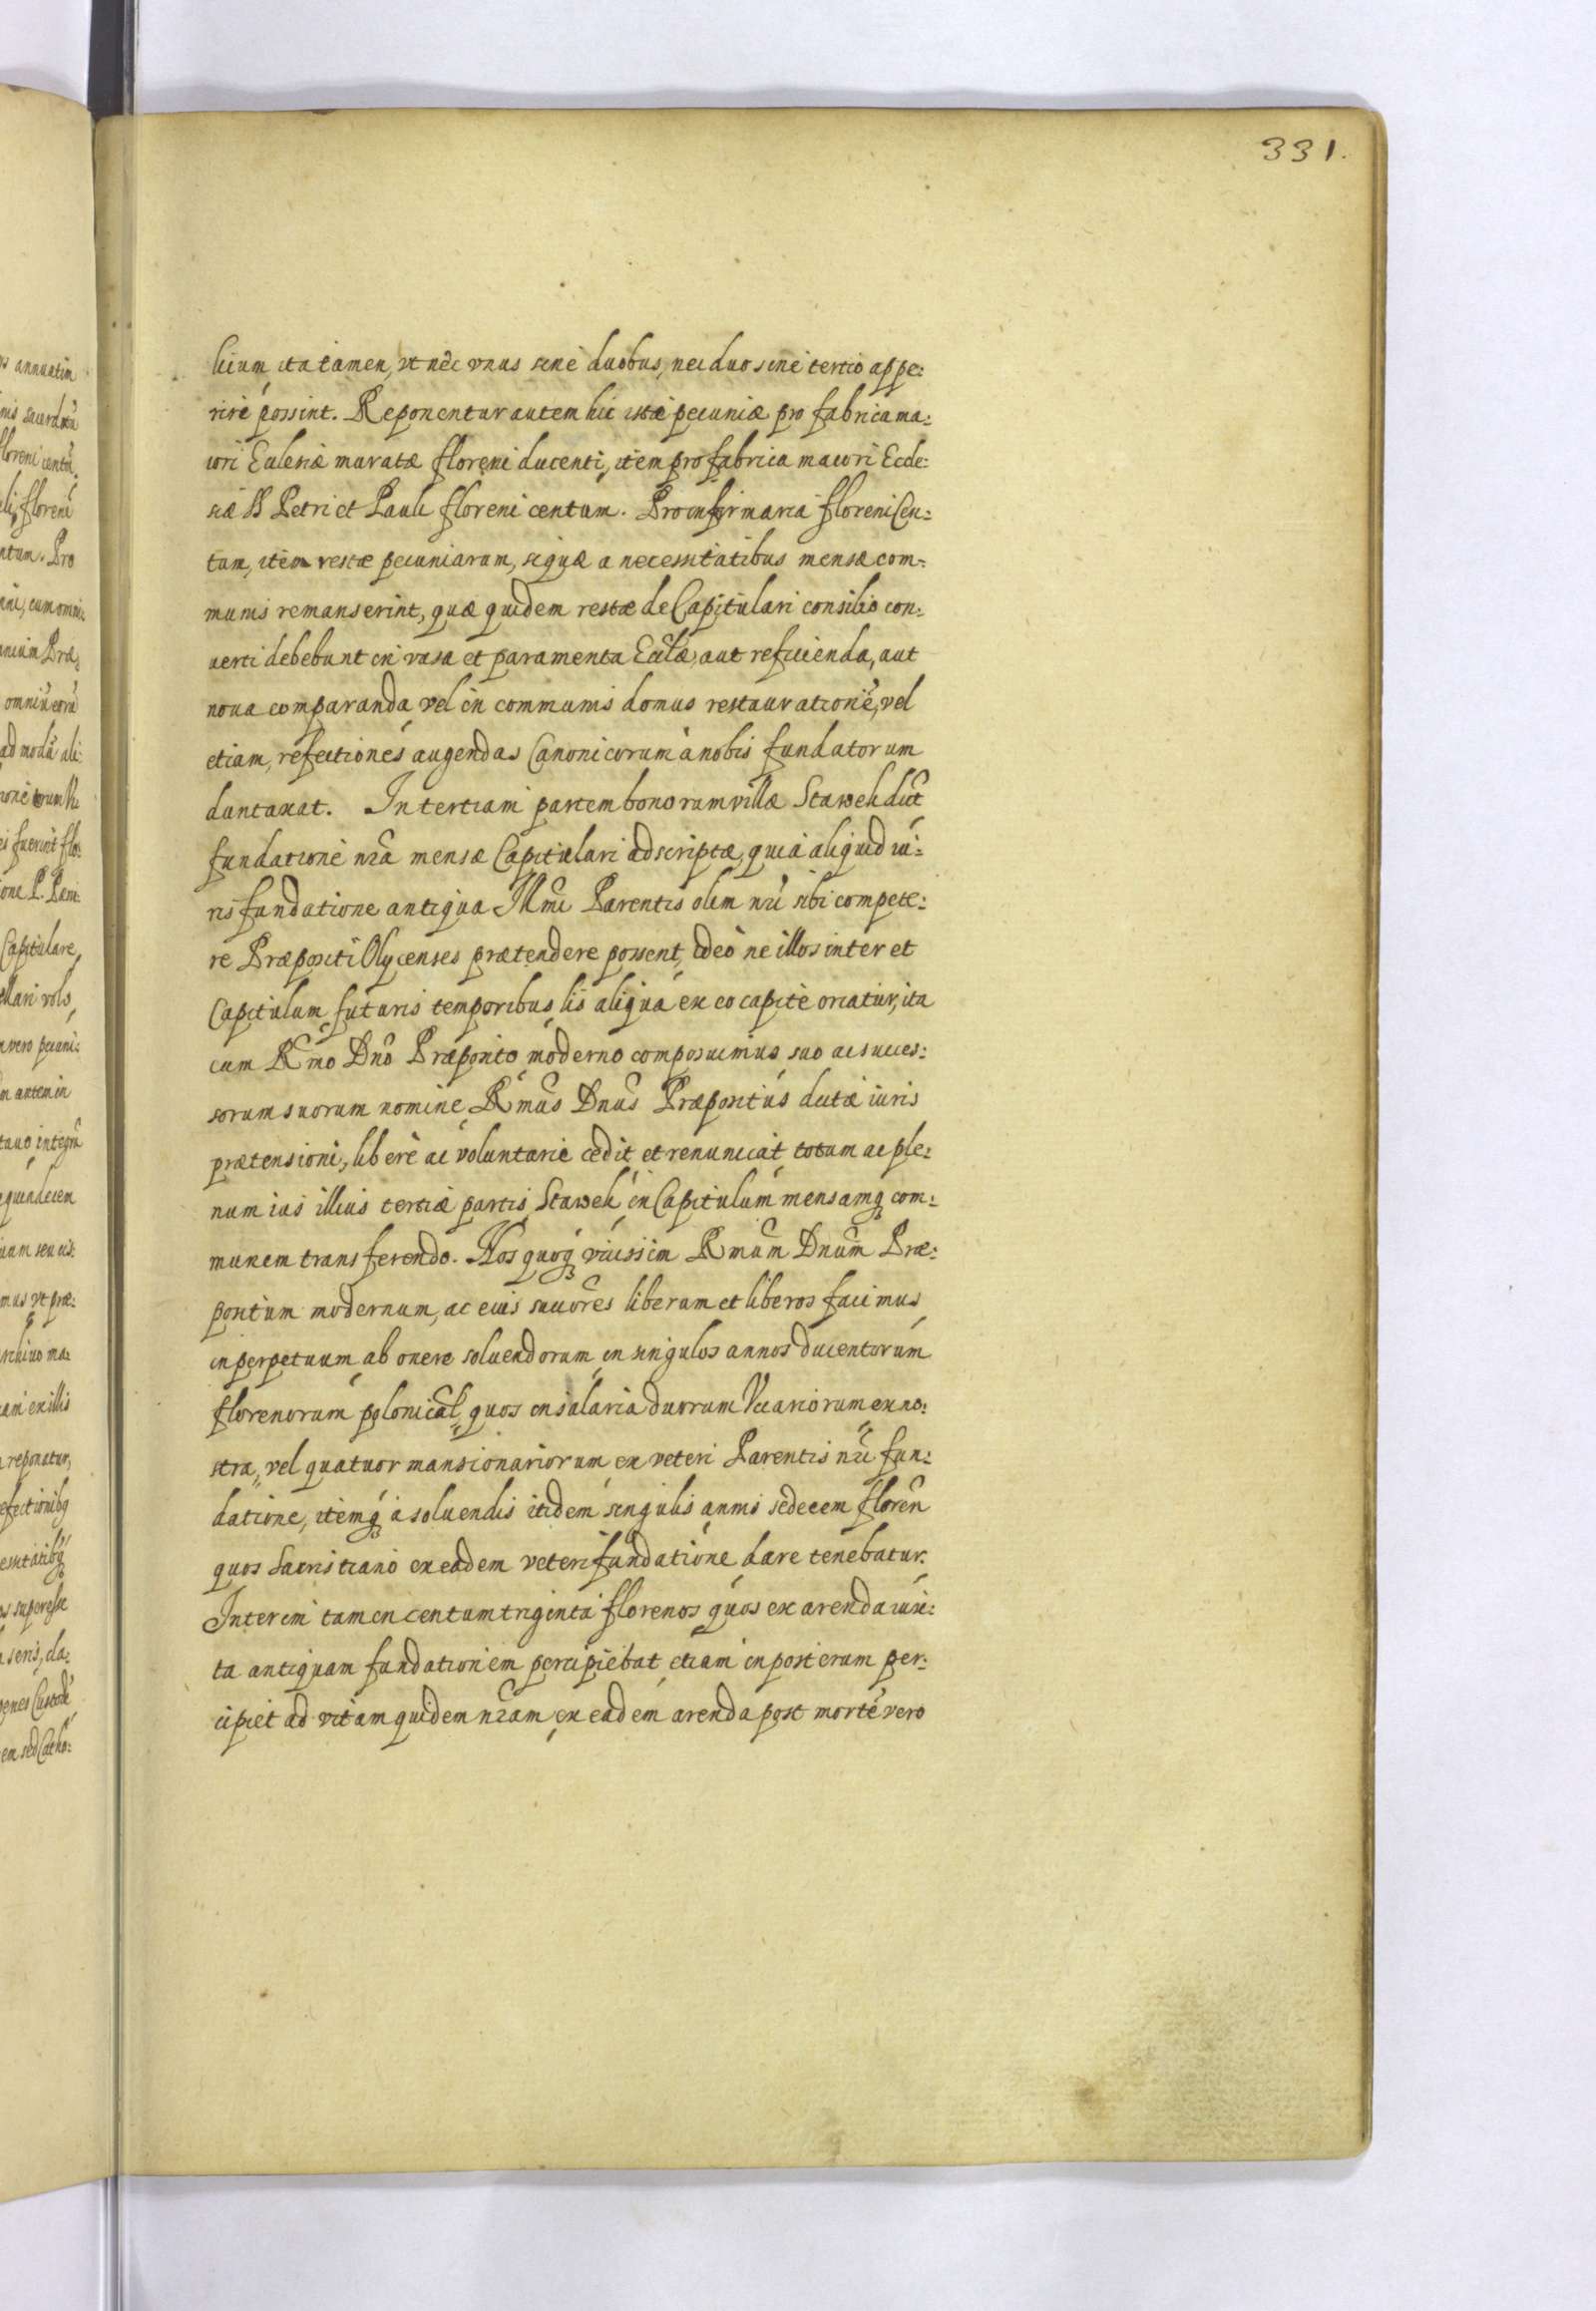 331.
licum, ita tamen, vt nec vnus sine duobus, nec duo sine tertio appe:
rire possint. Reponentur autem hic istæ pecuniæ pro fabrica ma:
iori Eulesiæ muratæ floreni ducenti, item pro fabrica maiori Eccle:
siæ SS Petri et Pauli floreni centum. Pro infirmaria floreni Cen:
tum, item restæ pecuniarum, si quæ a necessitatibus mensæ com:
munis remanserint, quæ quidem restæ de Capitulari consilio con:
uerti debebunt in vasa et paramenta Eccłæ, aut reficienda, aut
noua comparanda, vel in communis domus restauratione, vel
etiam, refectiones augendas Canonicorum à nobis fundatorum
duntaxat. In tertiam partem bonorum villæ Stawek dict
fundatione nrã mensæ Capitulari adscriptæ, quia aliquid iu:
ris fundatione antiqua Illmi Parentis olim nri sibi compete:
re Præpositi Olycenses prætendere possent, ideò ne illos inter et
Capitulum futuris temporibus lis aliqua ex eo capite oriatur, ita
cum Rmo Dno Præposito moderno composuimus, suo ac succes:
sorum suorum nomine, Rmus Dnus Præpositus dictæ iuris
prætensioni, liberè ac voluntariè cedit et renunciat totum ac ple:
num ius illius tertiæ partis Stawek in Capitulum mensamq com:
munem transferendo. Nos quoq vicissim Rmum Dnum Præ:
positum modernum, ac eius succores liberum et liberos facimus
in perpetuum ab onere soluendorum in singulos annos ducentorum
florenorum polonical, quos in salaria duorum Vicariorum ex no:
stra, vel quatuor mansionariorum ex veteri Parentis nri fun:
datione, itemq à soluendis itidem singulis annis sedecem floren
quos Sacristiano ex eadem veteri fundatione dare tenebatur.
Interim tamen centum triginta florenos quos ex arenda iux:
ta antiquam fundationem percipiebat, etiam in posterum per:
cipiet ad vitam quidem nram ex eadem arenda post morte vero